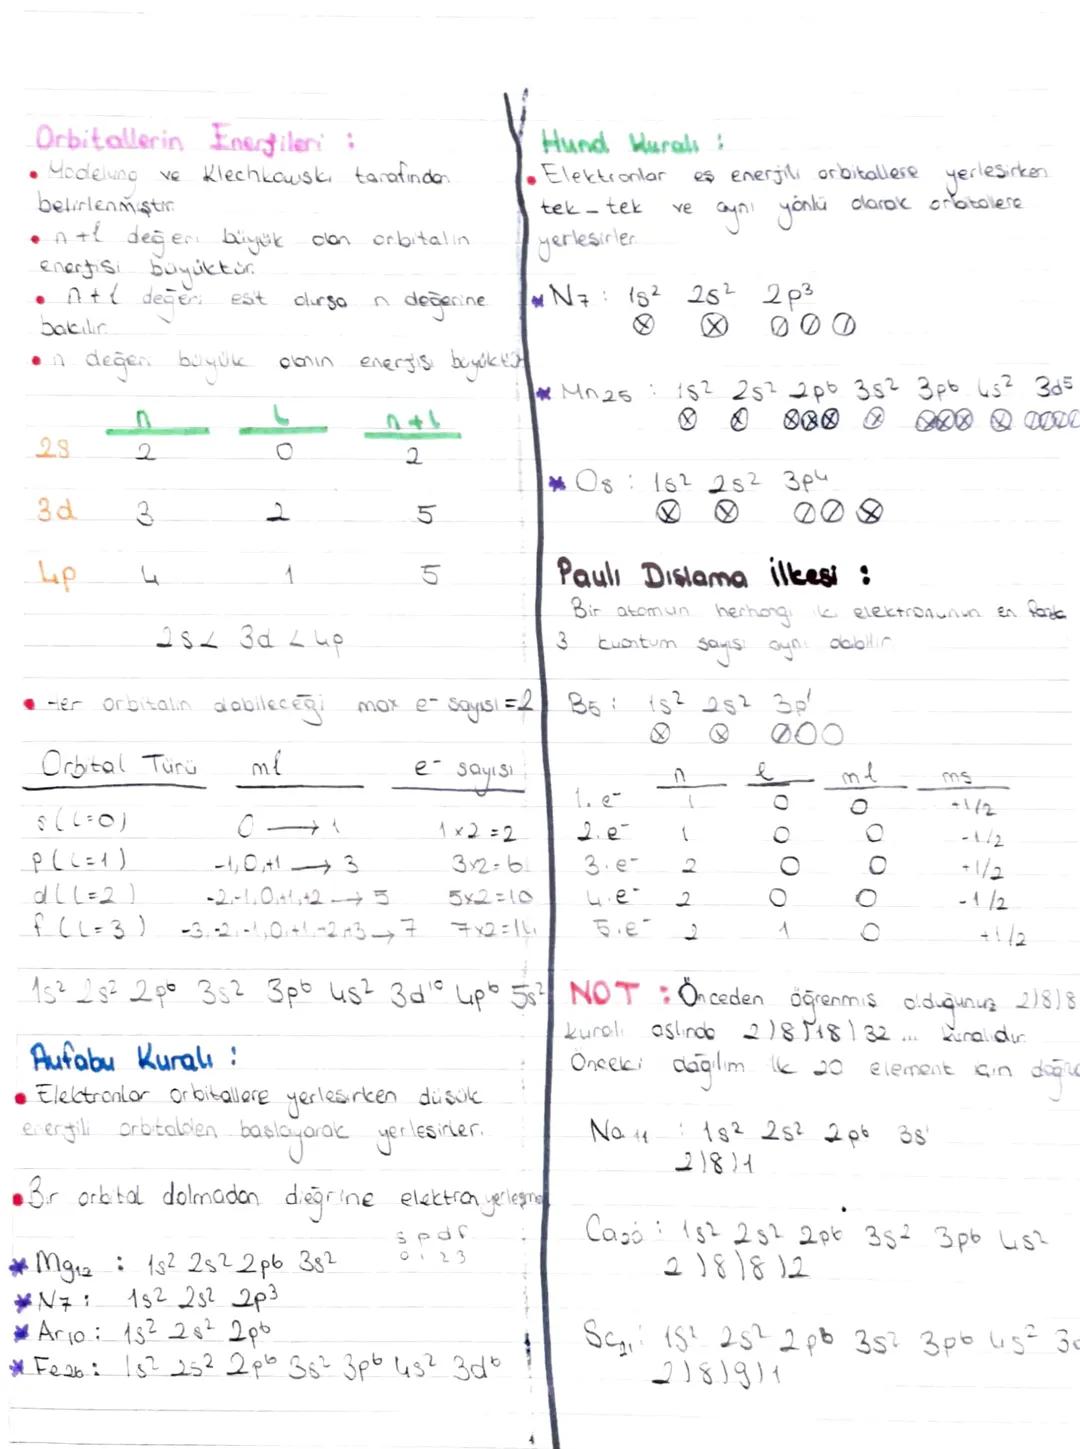 Orbitallerin Enerjileri :
• Modelung ve Klechkowski tarafından
belirlenmiştir
• n+l değeri büyük olan orbitalin
enerjisi büyüktür.
• n+l değeri eşit olursa n değerine
bakılır
• n değeri büyük olanın enerjisi büyüktür
n l n+l
2s 2 0 2
3d 3 2 5
4p 4 1 5
2s < 3d < 4p
• Her orbitalin alabileceği max e- sayısı = 2
Orbital Türü ml e- sayısı
s (l=0) 0 → 1 1x2=2
p (l=1) -1,0,+1 → 3 3x2=6
d (l=2) -2,-1,0,+1,+2 → 5 5x2=10
f (l=3) -3,-2,-1,0,+1,-2,+3 → 7 7x2=14
1s² 2s² 2p⁶ 3s² 3p⁶ 4s² 3d¹⁰ 4p⁶ 5s²
Aufabu Kuralı :
• Elektronlar orbitallere yerleşirken düşük
enerjili orbitalden başlayarak yerleşirler.
• Bir orbital dolmadan dieğrine elektron yerleşme
s p d f
0 1 2 3
* Mg₁₂ : 1s² 2s² 2p6 3s²
* N₇ : 1s² 2s² 2p³
* Ar₁₀ : 1s² 2s² 2p⁶
* Fe₂₆ : 1s² 2s² 2p⁶ 3s² 3p⁶ 4s² 3d⁶
Hund Kuralı :
• Elektronlar eş enerjili orbitallere yerleşirken
tek-tek ve aynı yönlü olarak orbitallere
yerleşirler
* N₇ : 1s² 2s² 2p³
* Mn₂₅ : 1s² 2s² 2p⁶ 3s² 3p⁶ 4s² 3d⁵
* O₈ : 1s² 2s² 3p⁴
Paulı Dışlama İlkesi :
Bir atomun herhangi iki elektronunun en fazla
3 kuantum sayısı aynı olabilir
B₅ : 1s² 2s² 3p¹
n l ml ms
1. e- 1 0 0 +1/2
2. e- 1 0 0 -1/2
3. e- 2 0 0 +1/2
4. e- 2 0 0 -1/2
5. e- 2 1 0 +1/2
NOT : Önceden öğrenmiş olduğunuz 2)8)8
kuralı aslında 2)8)18)32 ... kuralıdır.
Önceki dağılım ilk 20 element için doğru
Na₁₁ : 1s² 2s² 2p⁶ 3s¹
2)8)1
Ca₂₀ : 1s² 2s² 2p⁶ 3s² 3p⁶ 4s²
2)8)8)2
Sc₂₁ : 1s² 2s² 2p⁶ 3s² 3p⁶ 4s² 3d
2)8)9)1